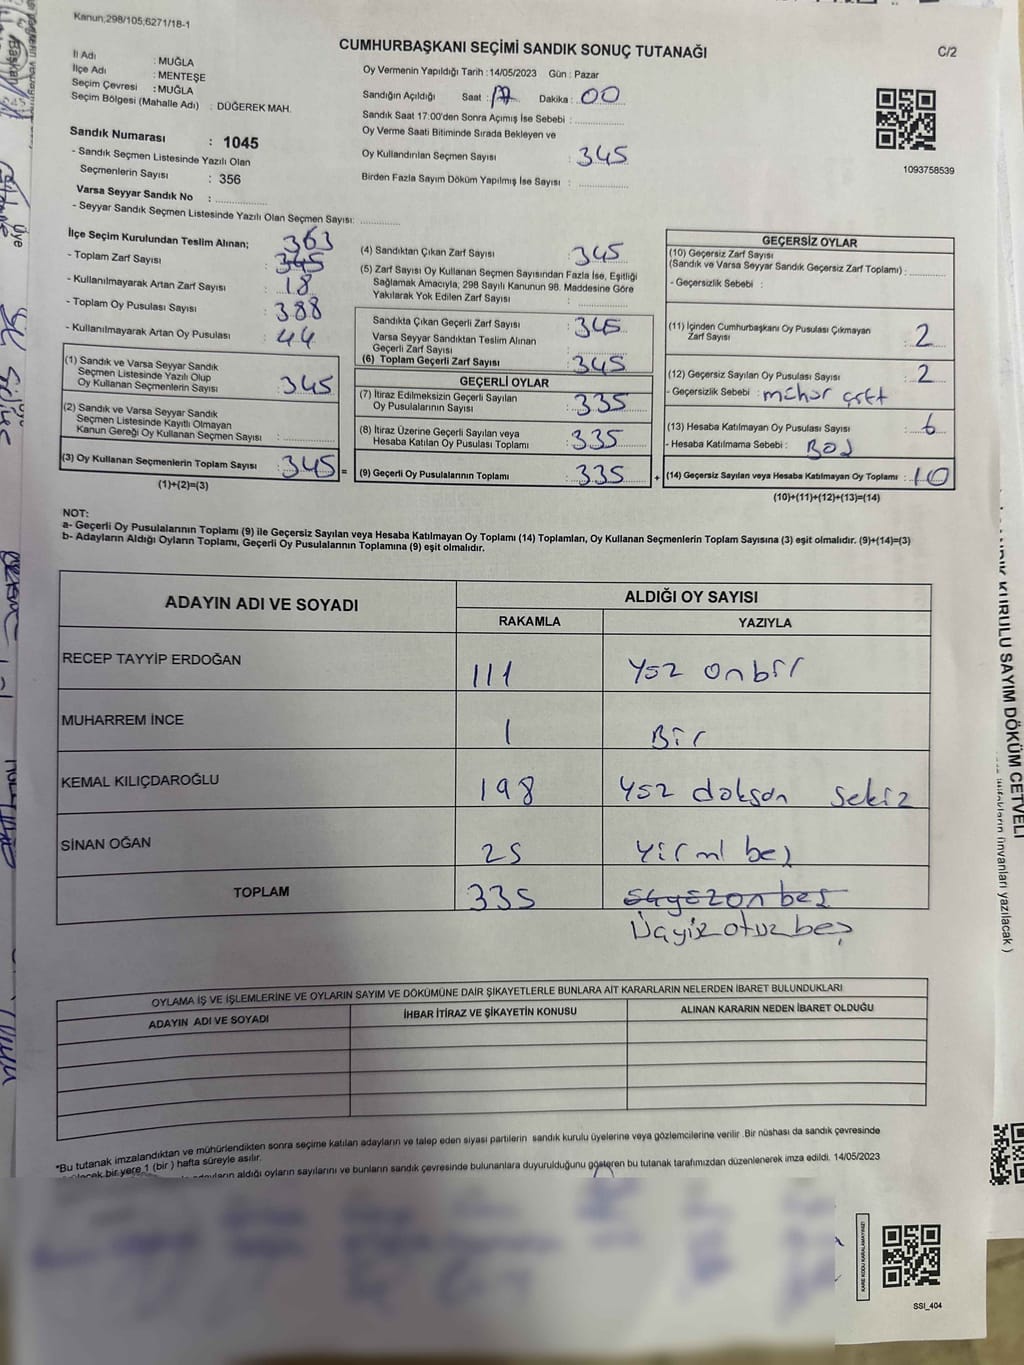 Kanun;298/105,6271/18-1
C/2
CUMHURBAŞKANI SEÇİMİ SANDIK SONUÇ TUTANAĞI
İl Adı : MUĞLA
İlçe Adı : MENTEŞE
Seçim Çevresi : MUĞLA
Seçim Bölgesi (Mahalle Adı) : DÜĞEREK MAH.
Sandık Numarası : 1045
- Sandık Seçmen Listesinde Yazılı Olan
Seçmenlerin Sayısı : 356
Varsa Seyyar Sandık No :
- Seyyar Sandık Seçmen Listesinde Yazılı Olan Seçmen Sayısı:
Oy Vermenin Yapıldığı Tarih :14/05/2023 Gün : Pazar
Sandığın Açıldığı Saat : Dakika : 00
Sandık Saat 17:00'den Sonra Açımış İse Sebebi :
Oy Verme Saati Bitiminde Sırada Bekleyen ve
Oy Kullandırılan Seçmen Sayısı : 345
Birden Fazla Sayım Döküm Yapılmış İse Sayısı :
1093758539
İlçe Seçim Kurulundan Teslim Alınan; 363
- Toplam Zarf Sayısı : 345
- Kullanılmayarak Artan Zarf Sayısı : 18
- Toplam Oy Pusulası Sayısı : 388
- Kullanılmayarak Artan Oy Pusulası : 44
(1) Sandık ve Varsa Seyyar Sandık
Seçmen Listesinde Yazılı Olup
Oy Kullanan Seçmenlerin Sayısı : 345
(2) Sandık ve Varsa Seyyar Sandık
Seçmen Listesinde Kayıtlı Olmayan
Kanun Gereği Oy Kullanan Seçmen Sayısı :
(3) Oy Kullanan Seçmenlerin Toplam Sayısı : 345 =
(1)+(2)=(3)
(4) Sandıktan Çıkan Zarf Sayısı : 345
(5) Zarf Sayısı Oy Kullanan Seçmen Sayısından Fazla İse, Eşitliği
Sağlamak Amacıyla; 298 Sayılı Kanunun 98. Maddesine Göre
Yakılarak Yok Edilen Zarf Sayısı :
Sandıkta Çıkan Geçerli Zarf Sayısı : 345
Varsa Seyyar Sandıktan Teslim Alınan
Geçerli Zarf Sayısı :
(6) Toplam Geçerli Zarf Sayısı : 345
GEÇERLİ OYLAR
(7) İtiraz Edilmeksizin Geçerli Sayılan
Oy Pusulalarının Sayısı : 335
(8) İtiraz Üzerine Geçerli Sayılan veya
Hesaba Katılan Oy Pusulası Toplamı : 335
(9) Geçerli Oy Pusulalarının Toplamı : 335 +
GEÇERSİZ OYLAR
(10) Geçersiz Zarf Sayısı
(Sandık ve Varsa Seyyar Sandık Geçersiz Zarf Toplamı) :
- Geçersizlik Sebebi :
(11) İçinden Cumhurbaşkanı Oy Pusulası Çıkmayan
Zarf Sayısı : 2
(12) Geçersiz Sayılan Oy Pusulası Sayısı : 2
- Geçersizlik Sebebi : mühür çift
(13) Hesaba Katılmayan Oy Pusulası Sayısı : 6
- Hesaba Katılmama Sebebi : Boş
(14) Geçersiz Sayılan veya Hesaba Katılmayan Oy Toplamı : 10
(10)+(11)+(12)+(13)=(14)
NOT:
a- Geçerli Oy Pusulalarının Toplamı (9) ile Geçersiz Sayılan veya Hesaba Katılmayan Oy Toplamı (14) Toplamları, Oy Kullanan Seçmenlerin Toplam Sayısına (3) eşit olmalıdır. (9)+(14)=(3)
b- Adayların Aldığı Oyların Toplamı, Geçerli Oy Pusulalarının Toplamına (9) eşit olmalıdır.
ADAYIN ADI VE SOYADI ALDIĞI OY SAYISI
RAKAMLA YAZIYLA
RECEP TAYYİP ERDOĞAN 111 Yüz onbir
MUHARREM İNCE 1 Bir
KEMAL KILIÇDAROĞLU 198 Yüz doksan sekiz
SİNAN OĞAN 25 Yirmi beş
TOPLAM 335
Üçyüz otuz beş
OYLAMA İŞ VE İŞLEMLERİNE VE OYLARIN SAYIM VE DÖKÜMÜNE DAİR ŞİKAYETLERLE BUNLARA AİT KARARLARIN NELERDEN İBARET BULUNDUKLARI
ADAYIN ADI VE SOYADI İHBAR İTİRAZ VE ŞİKAYETİN KONUSU ALINAN KARARIN NEDEN İBARET OLDUĞU
*Bu tutanak imzalandıktan ve mühürlendikten sonra seçime katılan adayların ve talep eden siyasi partilerin sandık kurulu üyelerine veya gözlemcilerine verilir .Bir nüshası da sandık çevresinde
bir yere 1 (bir ) hafta süreyle asılır.
aldığı oyların sayılarını ve bunların sandık çevresinde bulunanlara duyurulduğunu gösteren bu tutanak tarafımızdan düzenlenerek imza edildi. 14/05/2023
KARE KODU KARALAMAYINIZ!
SSI_404
KURULU SAYIM DÖKÜM CETVELİ
ünvanları yazılacak )
Başkan
Üye